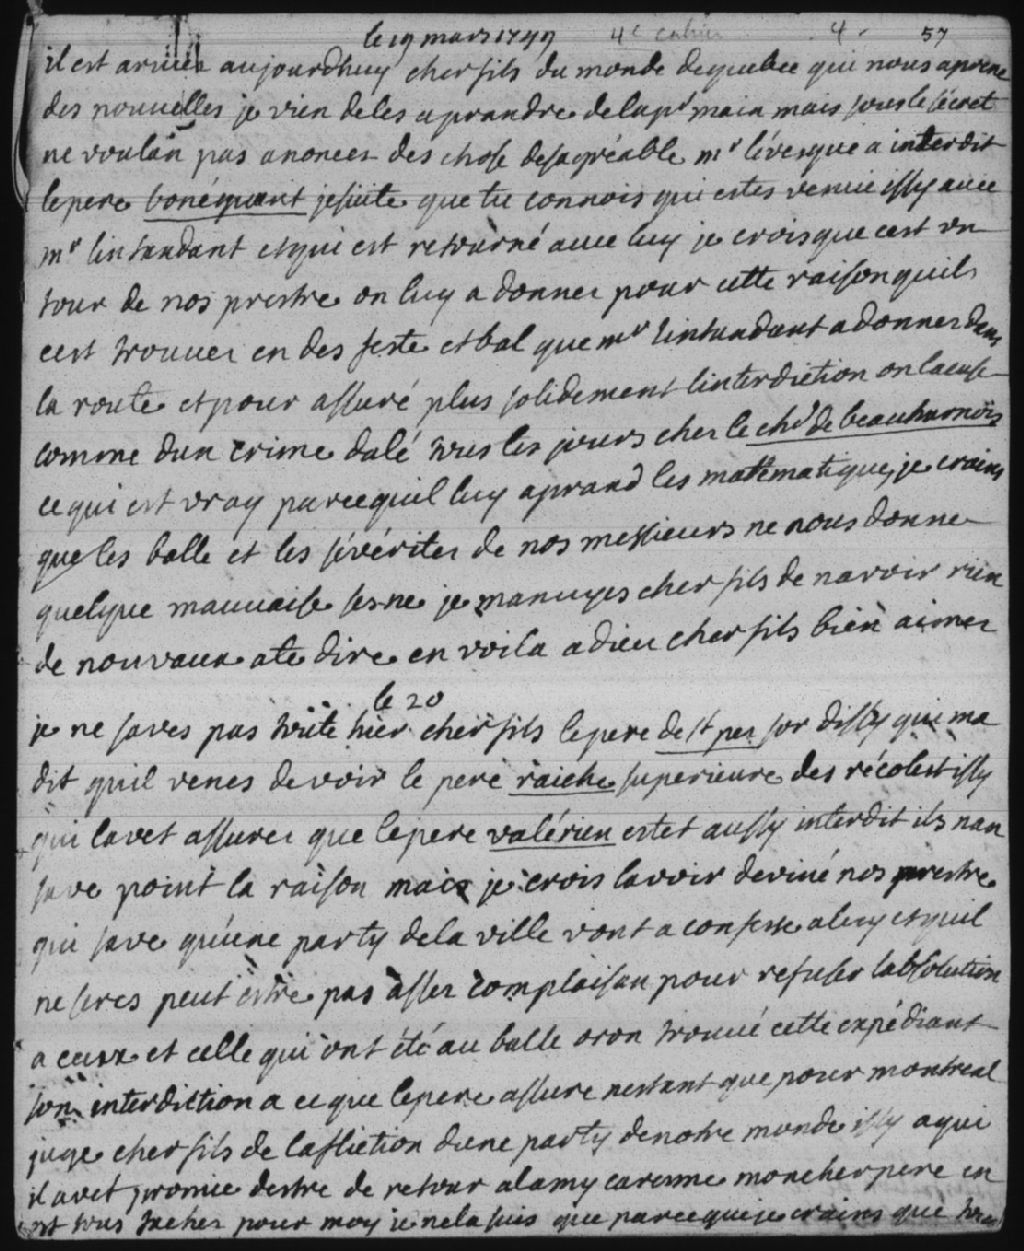 le 19 mars 1749 4e cahier 4. 57
il est arrivee aujourdhuy cher fils du monde de quebec qui nous aprene
des nouvelles je vien de les aprandre de la pr main mais sous le secret
ne voulan pas anoncer des chose desagréable mr lévesque a interdit
le pere bonéquant jesuite que tu connois qui estes venue issy avec
mr lintandant et qui est retourné avec luy je crois que cest un
tour de nos prestre on luy a donner pour cette raison quils
cest trouver en des feste et bal que mr lintandant a donner dans
la route et pour assuré plus solidement linterdiction on lacuse
comme dun crime dalé tous les jours cher le chr de beauharnois
ce qui est vray parcequil luy aprand les matématique je crains
que les balle et les sévéritez de nos messieurs ne nous donne
quelque mauvaise sesne je manuyes cher fils de navoir rien
de nouvaux a te dire en voila adieu cher fils bien aimer
le 20
je ne saves pas tuite hier cher fils le pere de st per sor dissy qui ma
dit quil venes de voir le pere raiche superieure des récolest issy
qui lavet assurer que le pere valérien estet aussy interdit ils nan
save point la raison mais je crois lavoir deviné nos prestre
qui save quéune party de la ville vont a confesse a luy et quil
ne seres peut estre pas asser complaisan pour refuser labsolution
a ceux et celle qui ont été au balle oron trouvé cette expédiant
son interdiction a ce que le pere assure nestant que pour montreal
juge cher fils de lafliction dune party de notre monde issy a qui
il avet promie destre de retour a la my caresme mon cher pere en
est tous facher pour moy je ne la suis que parceque je crains que